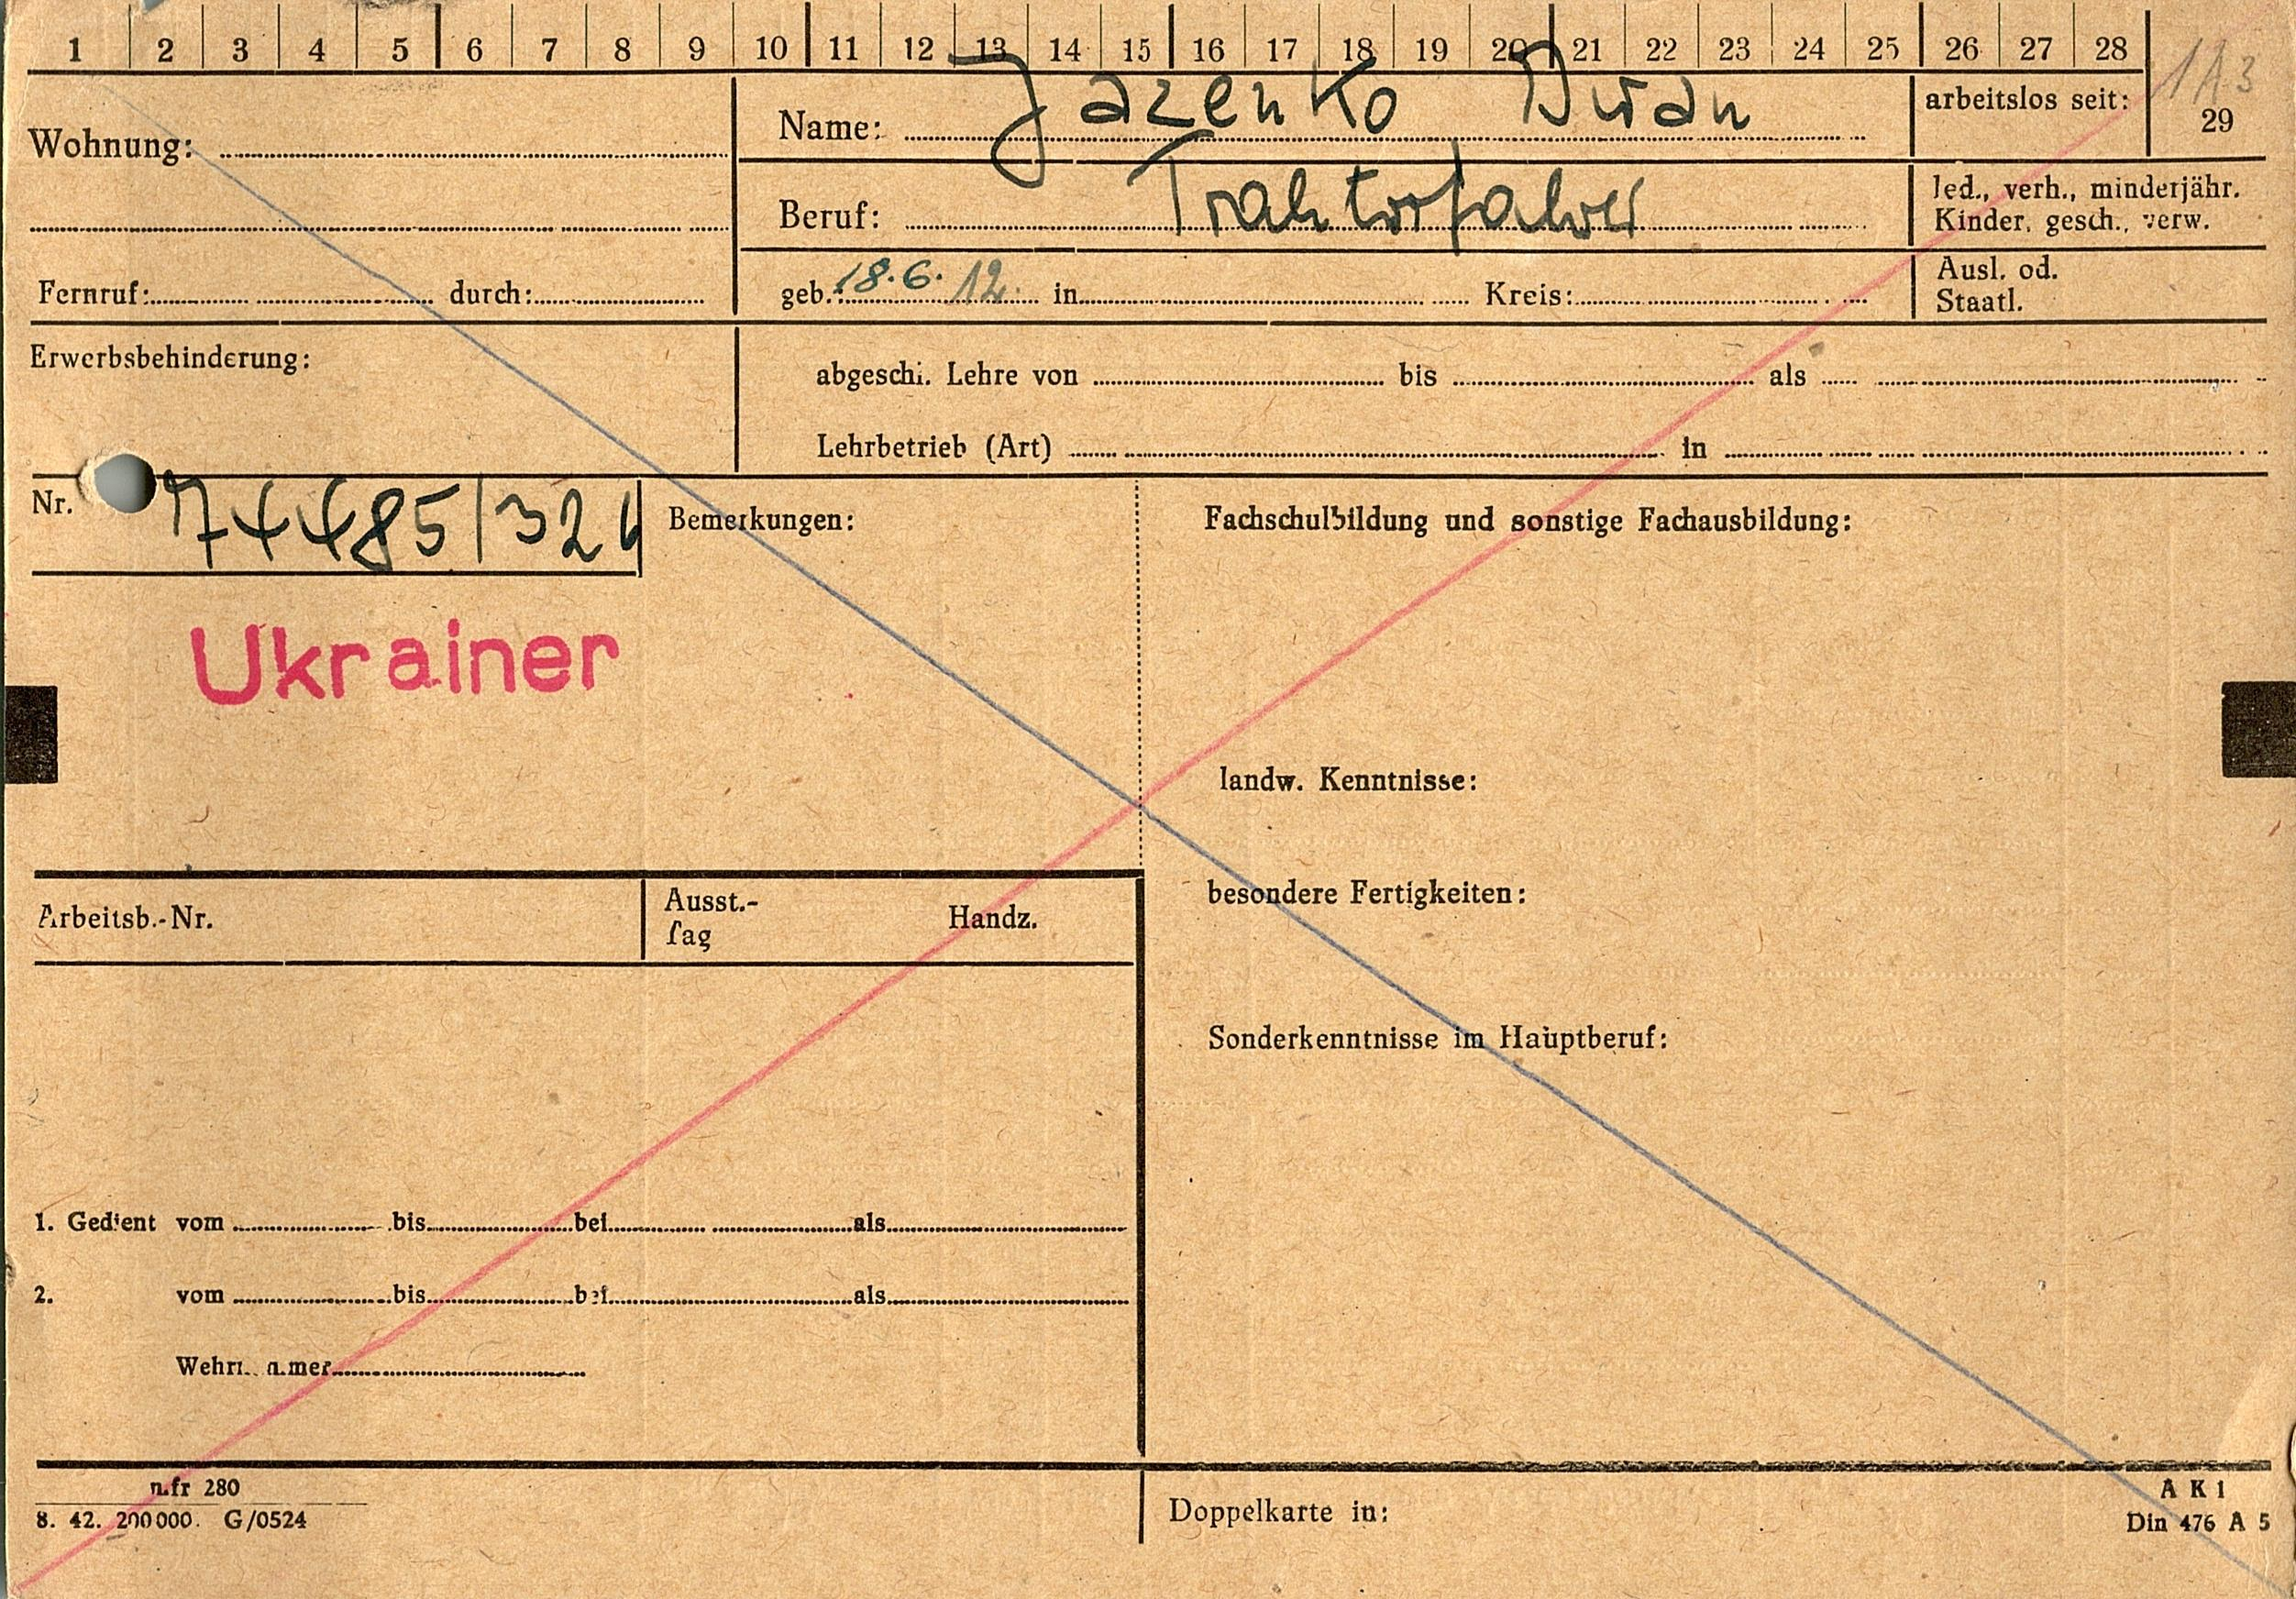 1 2 3 4 5 6 7 8 9 10 11 12 13 14 15 16 17 18 19 20 21 22 23 24 25 26 27 28
29
Wohnung:
Name: Jazenko Iwan
arbeitslos seit:
Beruf: Traktorfahrer
led., verh., minderjähr.
Kinder, gesch., verw.
Fernruf: durch:
geb. 18.6.12. in Kreis:
Ausl. od.
Staatl.
Erwerbsbehinderung:
abgeschl. Lehre von bis als
Lehrbetrieb (Art) in
Nr. 74485/324
Bemerkungen:
Fachschulbildung und sonstige Fachausbildung:
Ukrainer
landw. Kenntnisse:
besondere Fertigkeiten:
Arbeitsb.-Nr.
Ausst.-
Tag
Handz.
Sonderkenntnisse im Hauptberuf:
1. Gedient vom bis bei als
2. vom bis bei als
n.fr 280
8. 42. 200000. G/0524
Doppelkarte in:
A K 1
Din 476 A 5